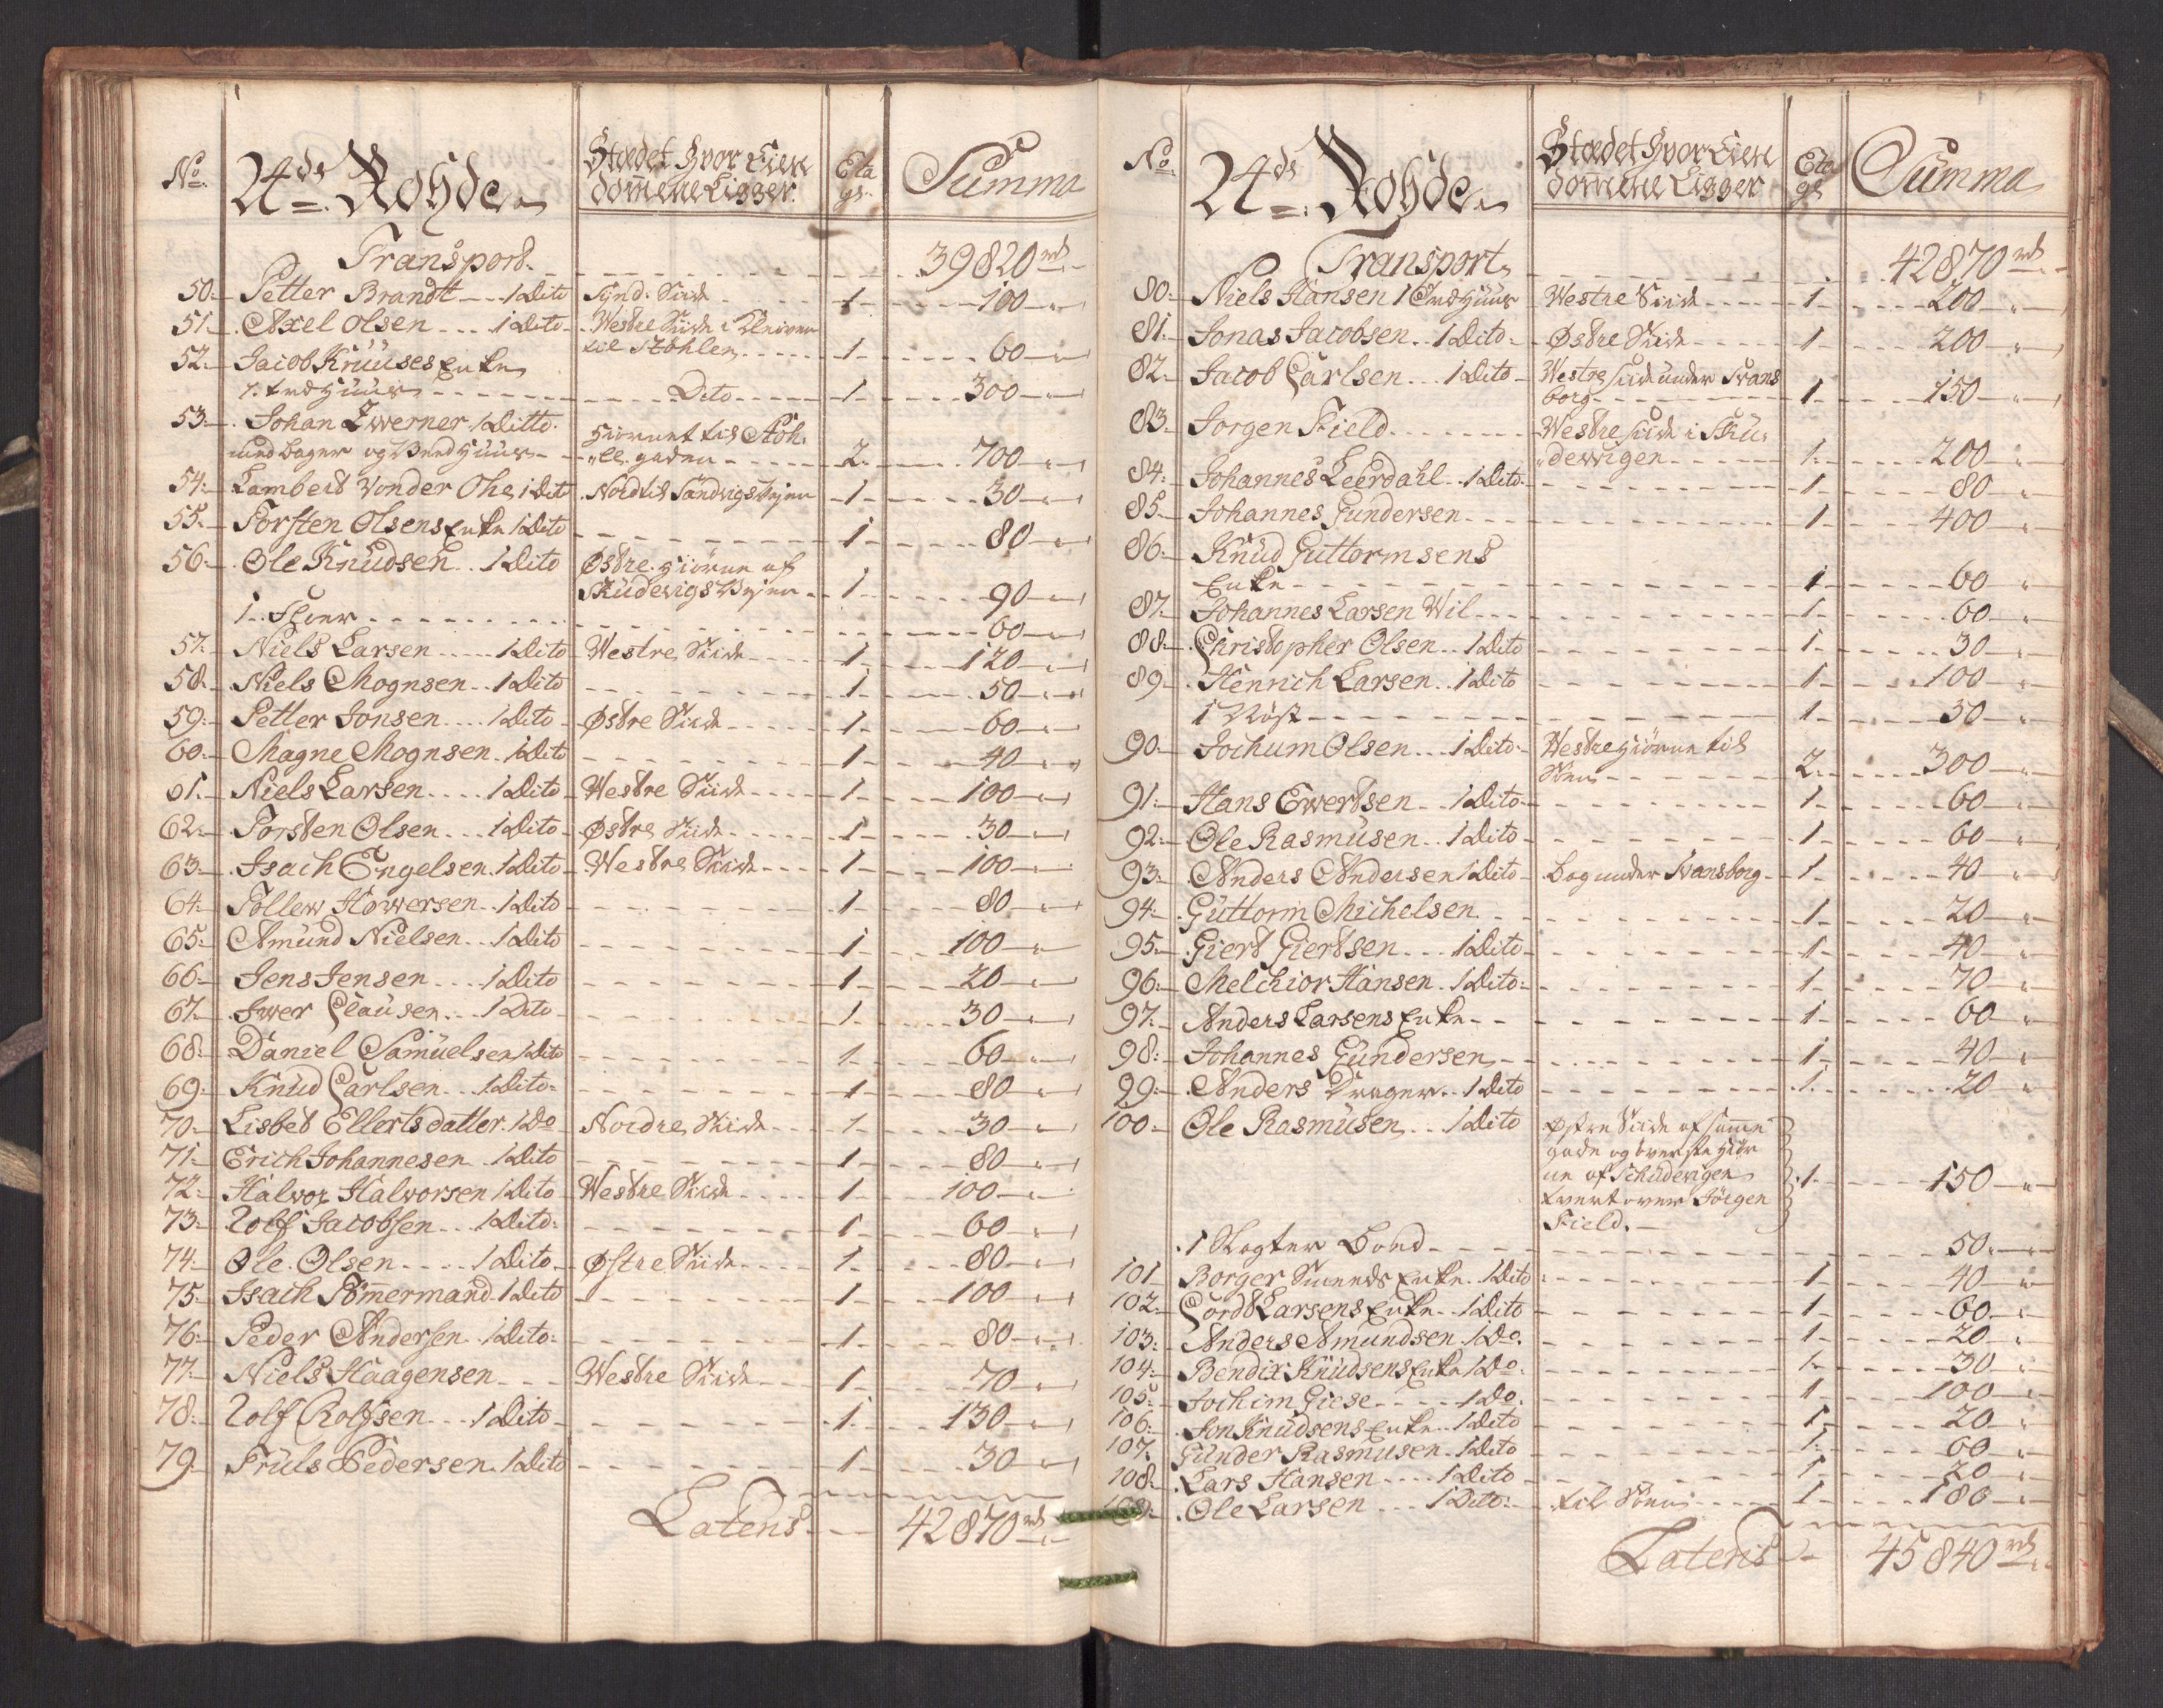 No. 24de Rohde Stædet hvor Eien Eta Summa
dommene Ligger. ges.
Transport 39820 rd
50. Petter Brandt 1 Dito Synd. Siide 1 100
51. Axel Olsen 1 Dito Westre Siide i Kleiven
til Stöhlen 1 60
52. Jacob Krüüses Enke
1. Træhüüs Dito 1 300
53. Johan Zwerner 1 Ditto Hiörnet til Stöh-
med bager og Bredhüüs le gaden 2 700
54. Lambert Vonder Ohe 1 Dito Nord til Sandvigs Vejen 1 30
55. Torsten Olsens Enke 1 Dito 1 80
56. Ole Knüdsen 1 Dito Østre Hiörne af
Sküdevigs Vejen 1 90
1 60
57. Niels Larsen 1 Dito Westre Siide 1 120
58. Niels Mognsen 1 Dito 1 50
59. Petter Jonsen 1 Dito Østre Siide 1 60
60. Magne Mognsen 1 Dito 1 40
61. Niels Larsen 1 Dito Westre Siide 1 100
62. Torsten Olsen 1 Dito Østre Siide 1 30
63. Isach Engelsen 1 Dito Westre Siide 1 100
64. Tollew Hawersen 1 Dito 1 80
65. Amünd Nielsen 1 Dito 1 100
66. Jens Jensen 1 Dito 1 20
67. Iwer Claüsen 1 Dito 1 30
68. Daniel Samüelsen 1 Dito 1 60
69. Knüd Carlsen 1 Dito 1 80
70. Lisbet Ellertsdatter 1 Do Nordre Siide 1 30
71. Erich Johannesen 1 Dito 1 80
72. Halvor Halvorsen 1 Dito Westre Siide 1 100
73. Rolf Jacobsen 1 Dito 1 60
74. Ole Olsen 1 Dito Østre Siide 1 80
75. Isach Tömmermand 1 Dito 1 100
76. Peder Andersen 1 Dito 1 80
77. Niels Haagensen Westre Siide 1 70
78. Rolf Rolfsen 1 Dito 1 130
79. Trüls Pedersen 1 Dito 1 30
Latens 42870 rd
No. 24de Rohde Stædet hvor Eien Eta Summa
dommene Ligger ges
Transport 42870 rd
80. Niels Hansen 1 Træhüüs Westre Siide 1 200
81. Jonas Jacobsen 1 Dito Østre Siide 1 200
82. Jacob Carlsen 1 Dito Westre Siide under Svans
borg 1 150
83. Jorgen Field Westre Siide i Skü-
devigen 1 200
84. Johannes Leerdahl 1 Dito 1 80
85. Johannes Gundersen 1 400
86. Knüd Guttormsens
Enke 1 60
87. Johannes Larsen Wil 1 60
88. Christopher Olsen 1 Dito 1 30
89. Henrich Larsen 1 Dito 1 100
1 Nöst 1 30
90. Jochum Olsen 1 Dito Westre Hiörne til
Söen 2 300
91. Hans Ewertsen 1 Dito 1 60
92. Ole Rasmüsen 1 Dito 1 60
93. Anders Andersen 1 Dito Bag under Svansborg 1 40
94. Güttorm Michelsen 1 20
95. Giert Giertsen 1 Dito 1 40
96. Melchior Hansen 1 Dito 1 70
97. Anders Larsens Enke 1 60
98. Johannes Gündersen 1 40
99. Anders Drager 1 Dito 1 20
100. Ole Rasmüsen 1 Dito Østre Siide af samme
gade og överste Hiör
ne af Schüdevigen 1 150
tvert over Jörgen
Field.
1 Slagter Boed 50
101 Borger Enke 1 Dito 1 40
102. Cordt Larsens Enke 1 Dito 1 60
103. Anders Amundsen 1 Do. 1 20
104. Bendix Knüdsens Enke 1 Do. 1 30
105. Jochim Giese 1 Do. 1 100
106. Jon Knüdsens Enke 1 Dito 1 20
107. Günder Rasmusen 1 Dito 1 60
108. Lars Hansen 1 Dito 1 20
109. Ole Larsen 1 Dito til Söen 1 180
Latens 45840 rd